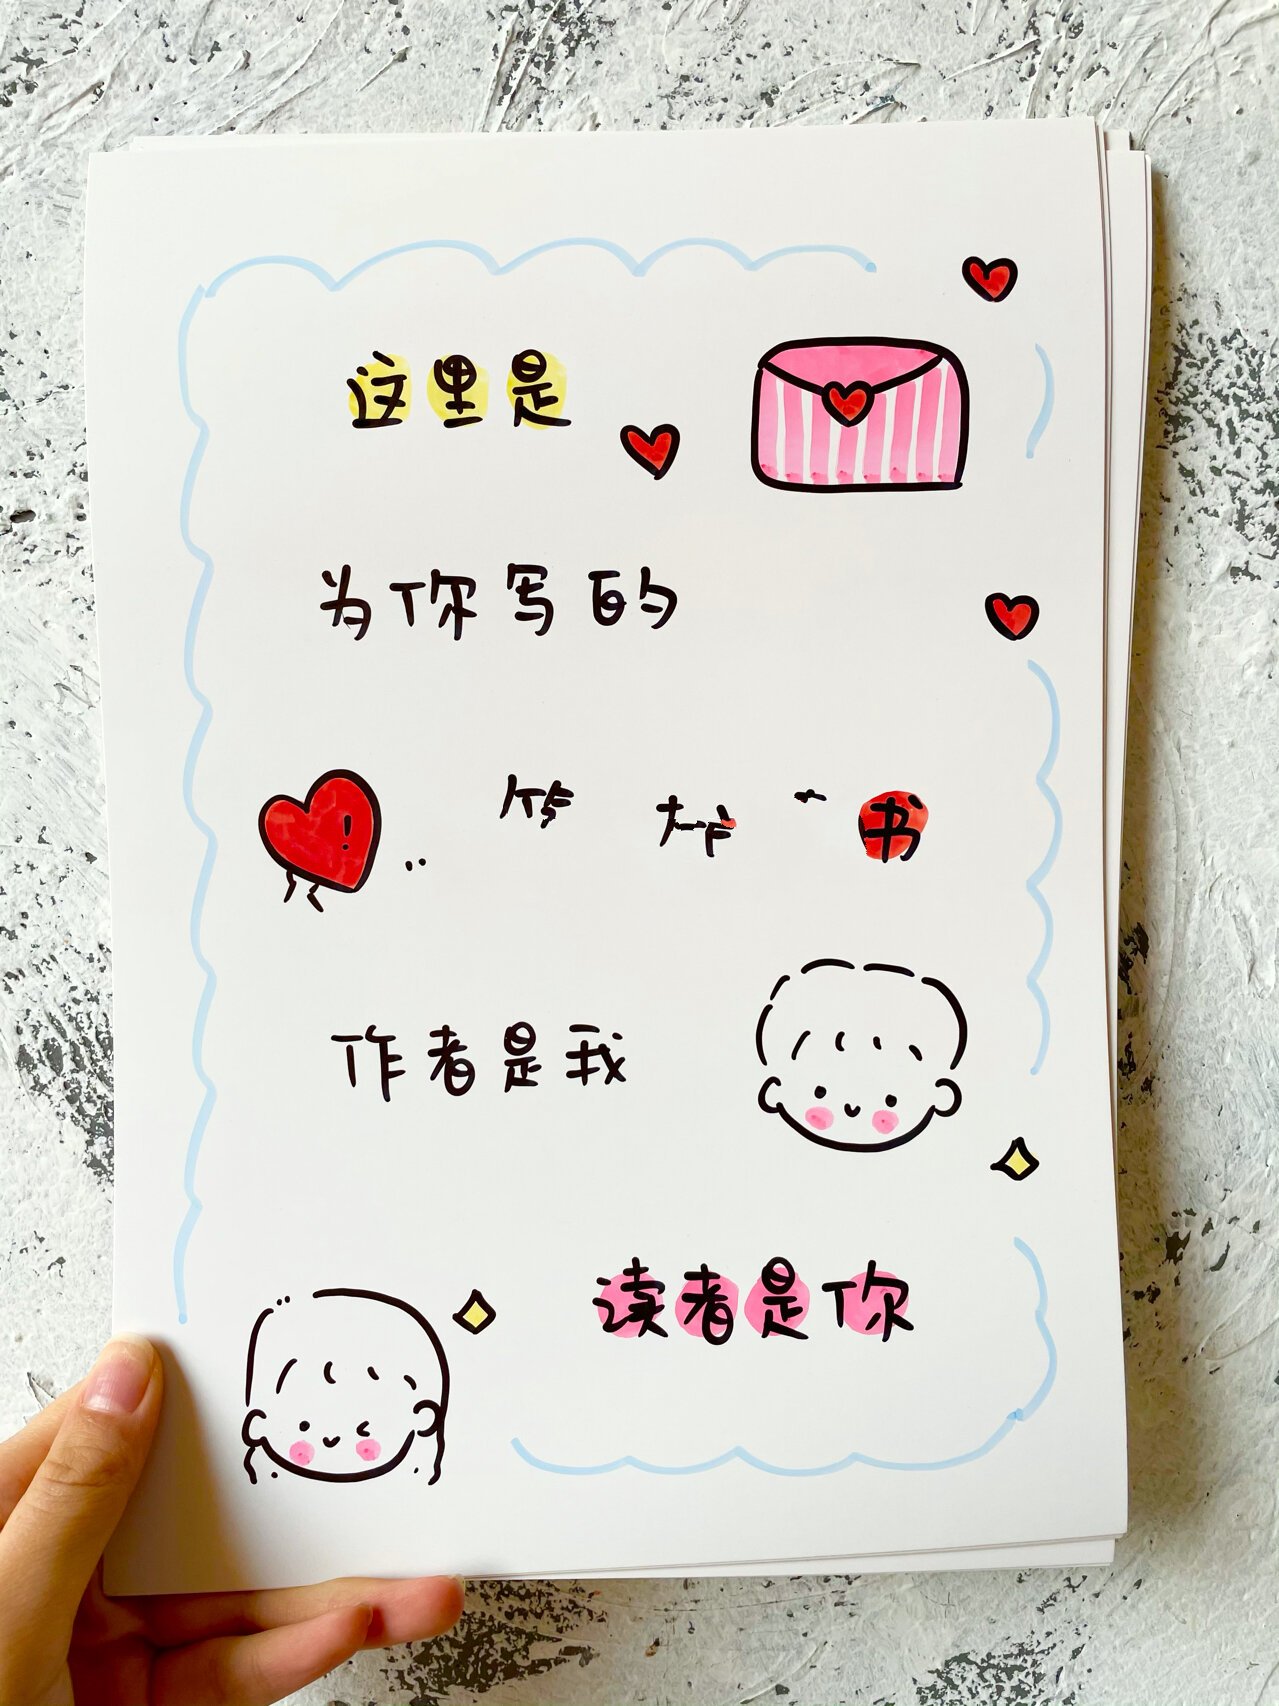 这里是
为你写的
书
作者是我
读者是你